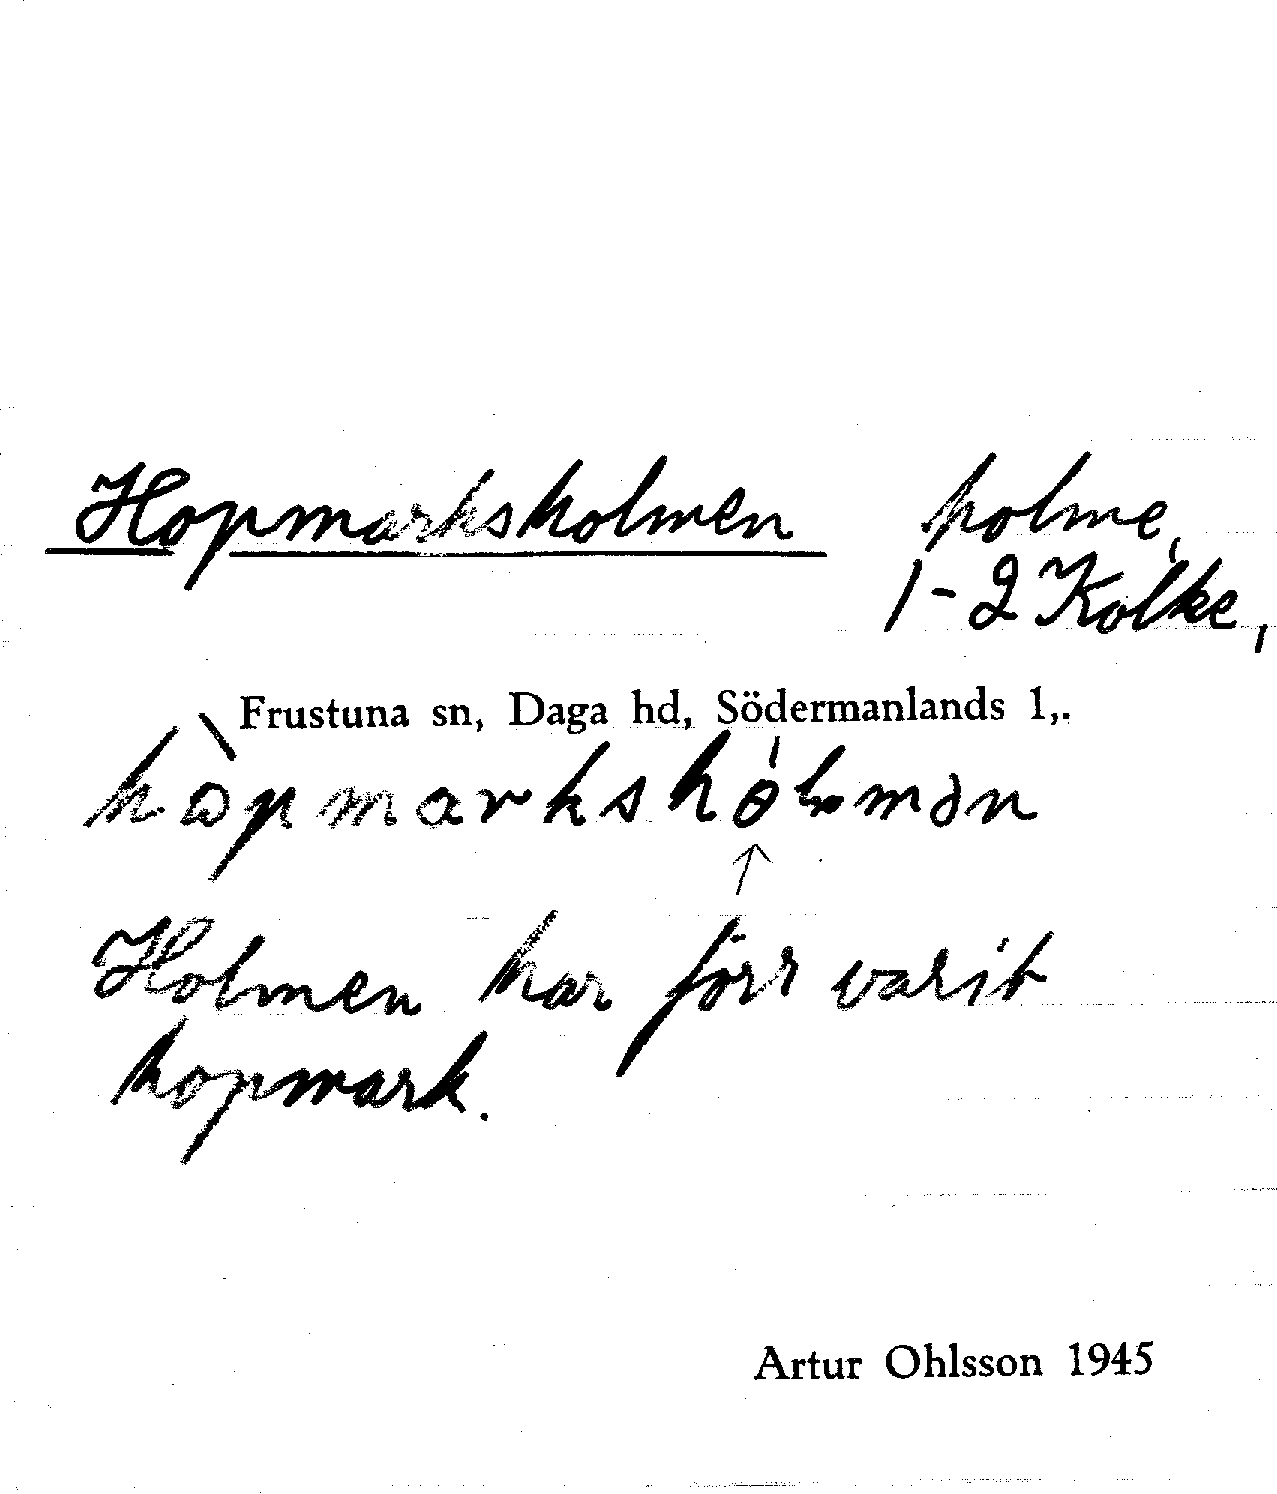 Hopmarksholmen holme,
1-2 Kolke,
Frustuna sn, Daga hd, Södermanlands l,.
hòpmarkshólmən
↑
Holmen har förr varit
hopmark.
Artur Ohlsson 1945